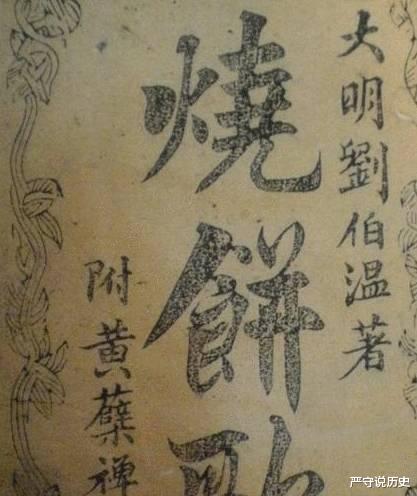 大明劉伯温著
燒餅歌
附黄蘗禅
严守说历史